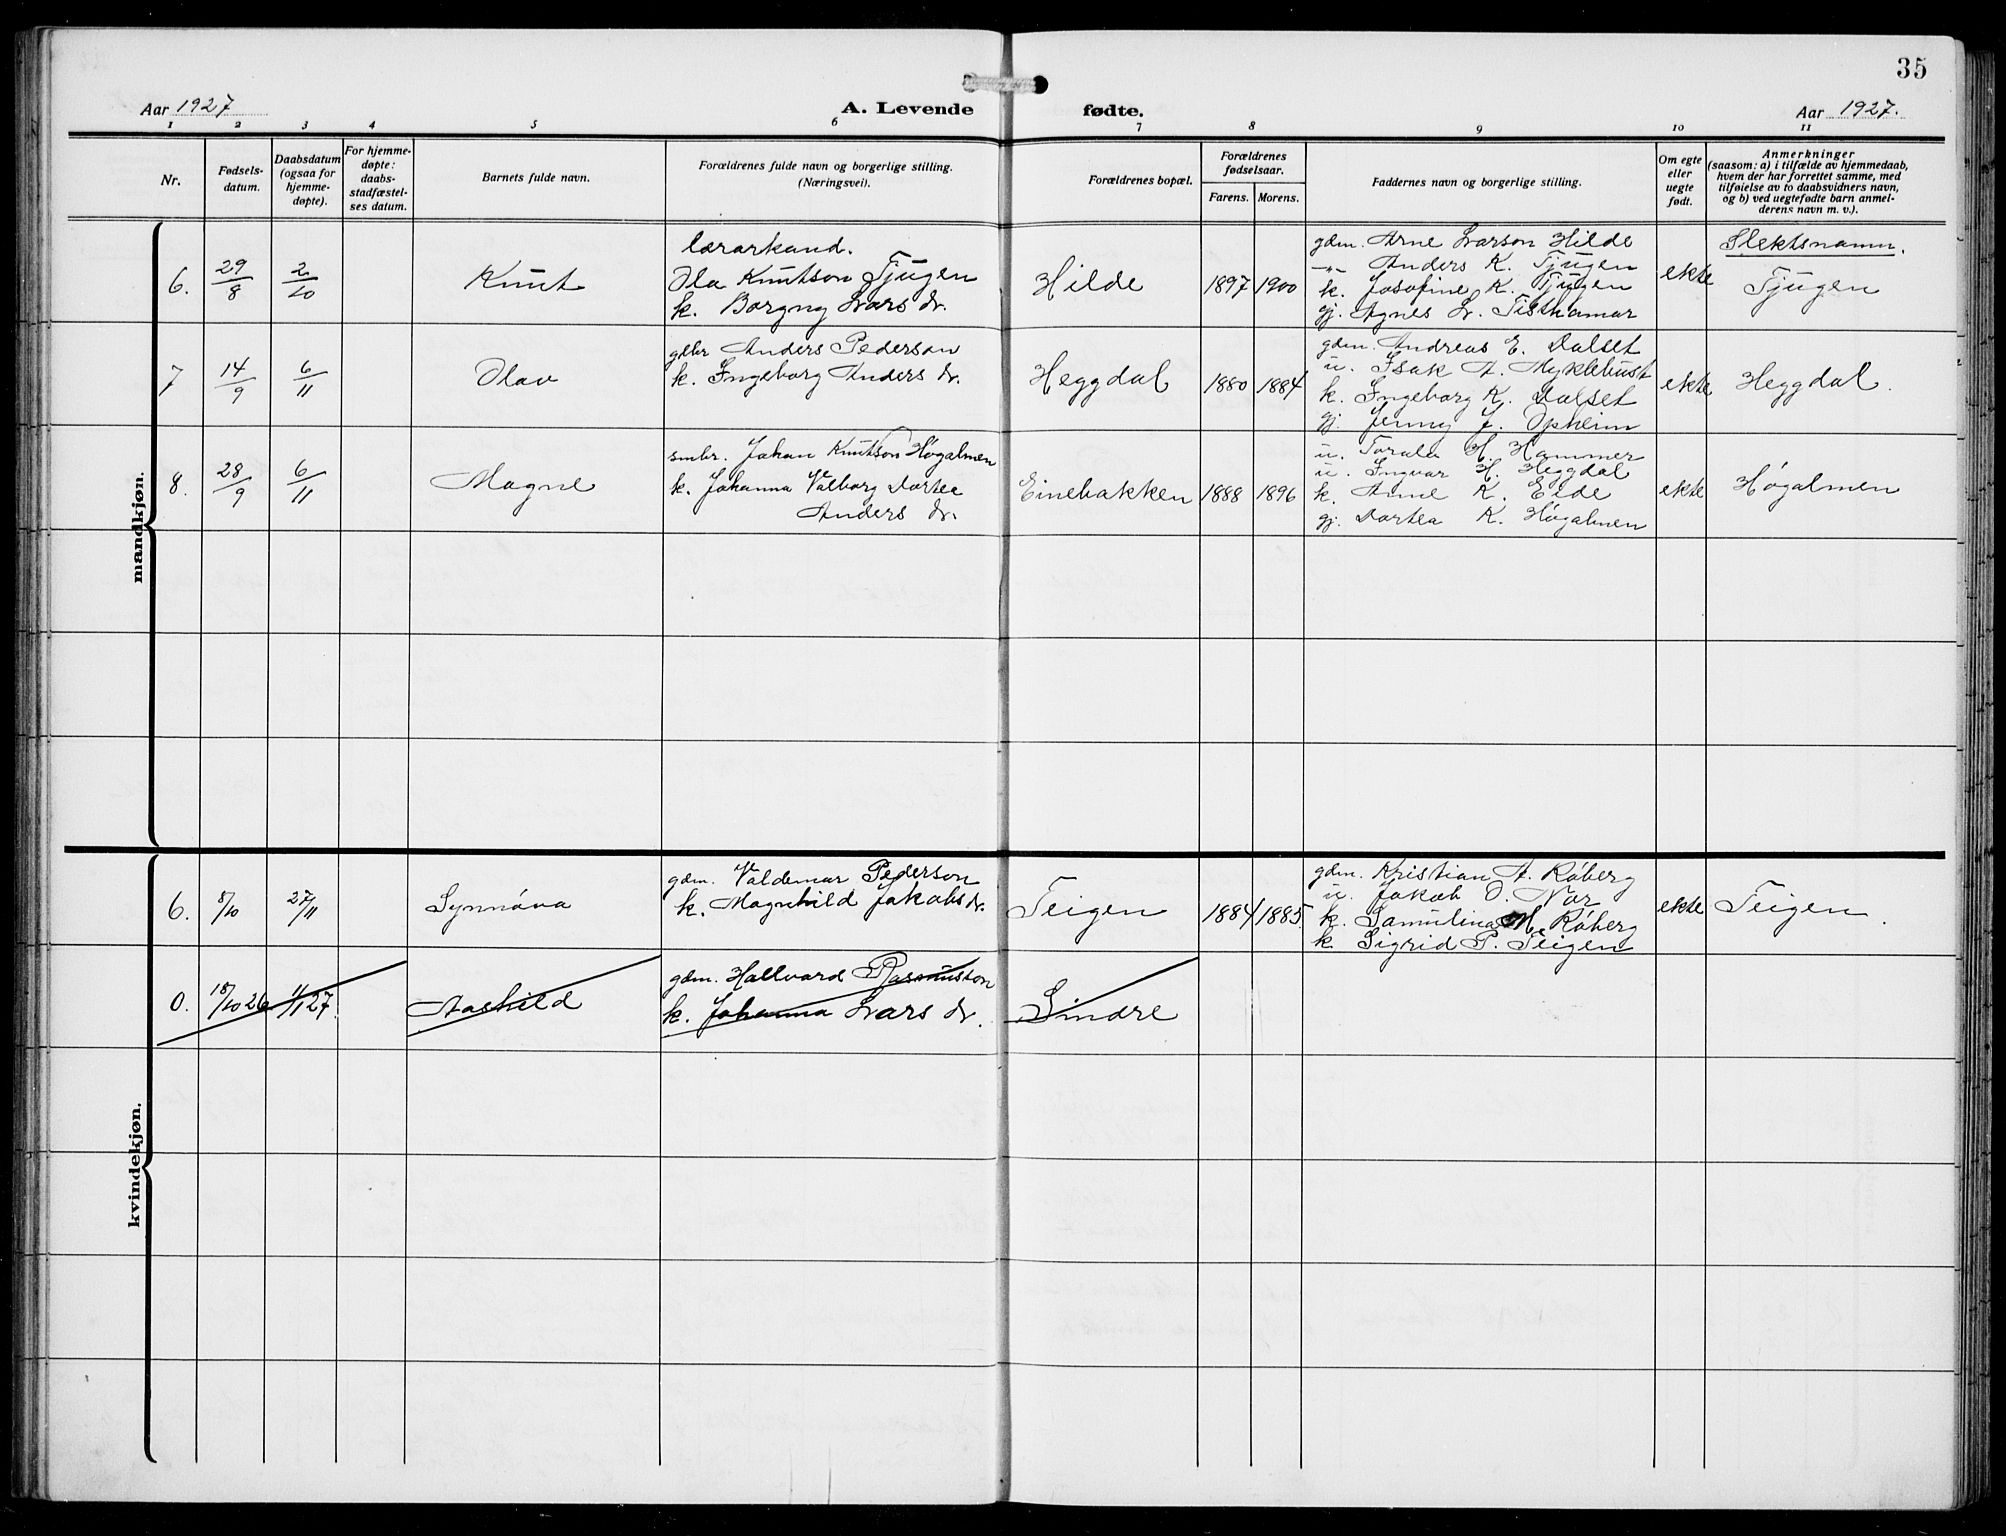 35
Aar 1927
A. Levende fødte.
Aar 1927.
1 2 3 4 5 6 7 8 9 10 11
Nr.
Fødsels-
datum.
Daabsdatum
(ogsaa for
hjemme-
døpte).
For hjemme-
døpte:
daabs-
stadfæstel-
ses datum.
Barnets fulde navn.
Forældrenes fulde navn og borgerlige stilling.
(Næringsvei).
Forældrenes bopæl.
Forældrenes
fødselsaar.
Farens. Morens.
Faddernes navn og borgerlige stilling.
Om egte
eller
uegte
født.
Anmerkninger
(saasom: a) i tilfælde av hjemmedaab,
hvem der har forrettet samme, med
tilføielse av to daabsvidners navn,
og b) ved uegtefødte barn anmel-
derens navn m. v.).
mandkjøn.
6. 29/8 2/10 Knut
lærarkand.
Ola Knutson Tjugen
k. Borgny Lars dr.
Hilde 1897 1900
gdm. Arne Larson Hilde
-"- Anders K. Tjugen
k. Josefine K. Tjugen
gj. Agnes L. Tisthamar
ekte
Slektsnamn.
Tjugen
7 14/9 6/11 Olav
gdbr Anders Pederson
k. Ingeborg Anders dr.
Heggdal 1880 1884
gdm. Andreas E. Dalset
u. Isak A. Myklebust
k. Ingeborg K. Dalset
gj. Jenny J. Opheim
ekte Heggdal.
8. 28/9 6/11 Magne
smbr. Johan Knutson Høgalmen
k. Johanna Valborg Dortea
Anders dr.
Einebakken 1888 1896
u. Torale H. Hammer
u. Ingvar H. Heggdal
k. Anne K. Eide
gj. Dortea K. Høgalmen
ekte Høgalmen
kvindekjøn.
6. 8/10 27/11 Synnøva
gdm. Valdemar Pederson
k. Magnhild Jakobs dr.
Teigen 1884 1885.
gdm. Kristian A. Røberg
u. Jakob O. Nor
k. Samulina M. Røberg
k. Sigrid P. Teigen
ekte Teigen.
0. 18/10 26 1/1 27. Aashild
gdm. Hallvard Rasmusson
k. Johanna Lars dr.
Sindre